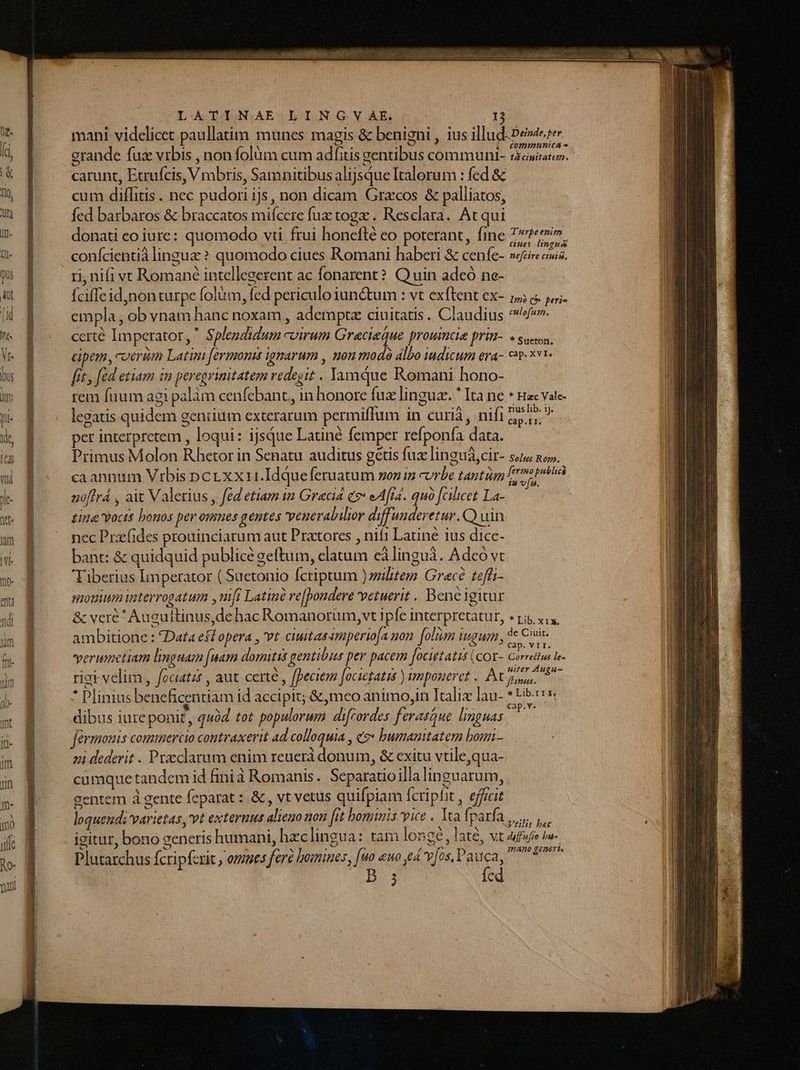 LATINAE LINGVAE. 13
mani videlicet paullatim munes magis & benigni, ius illud
grande suæ vrbis, non solùm cum adsitis gentibus communi-
carunt, Etruscis, Vmbris, Samnitibus alijsque Italorum: sed &
cum dissitis. nec pudori ijs, non dicam Græcos & palliatos,
sed barbaros & braccatos miscere suæ togæ. Res clara. Atqui
donati eo iure: quomodo vti frui honestè eo poterant, sine
conscientiâ linguæ? quomodo ciues Romani haberi & cense-
ri, nisi vt Romanè intellegerent ac sonarent? Quin adeò ne-
scisse id, non turpe solùm, sed periculo iunctum: vt exstent ex-
empla, ob vnam hanc noxam, ademptæ ciuitatis. Claudius
certè Imperator, * Splendidum virum Græciæque prouinciæ prin-
cipem, verùm Latini sermonis ignarum, non modò albo iudicum era-
sit, sed etiam in peregrinitatem redegit. Iamque Romani hono-
rem suum agi palàm censebant, in honore suæ linguæ. * Ita ne
legatis quidem gentium exterarum permissum in curiâ, nisi
per interpretem, loqui: ijsque Latinè semper responsa data.
Primus Molon Rhetor in Senatu auditus gêtis suæ linguâ, cir-
ca annum Vrbis DCLXXII. Idque seruatum non in vrbe tantùm
nostrâ, ait Valerius, sed etiam in Græciâ & Asiâ. quò scilicet La-
tinæ vocis honos per omnes gentes venerabilior diffunderetur. Quin
nec Præsides prouinciarum aut Prætores, nisi Latinè ius dice-
bant: & quidquid publicè gestum, elatum eâ linguâ. Adeò vt
Tiberius Imperator (Suetonio scriptum) militem Græcè testi-
monium interrogatum, nisi Latinè respondere vetuerit. Bene igitur
& verè * Augustinus, de hac Romanorum, vt ipse interpretatur,
ambitione: Data est opera, vt ciuitas imperiosa non solùm iugum,
verumetiam linguam suam domitis gentibus per pacem societatis (cor-
rigi velim, sociatis, aut certè, speciem societatis) imponeret. At
* Plinius beneficentiam id accipit; &, meo animo, in Italiæ lau-
dibus iure ponit, quòd tot populorum discordes ferasque linguas
sermonis commercio contraxerit ad colloquia, & humanitatem homi-
ni dederit. Præclarum enim reuerà donum, & exitu vtile, qua-
cumque tandem id finiâ Romanis. Separatio illa linguarum,
gentem à gente separat: &, vt vetus quispiam scripsit, efficit
loquendi varietas, vt externus alieno non sit hominis vice. Ita sparsa
igitur, bono generis humani, hæc lingua: tam longè, latè, vt
Plutarchus scripserit, omnes ferè homines, suo æuo, eâ vsos. Pauca,
B 3 sed
Deinde, per
communica-
tâ ciuitatem.
Turpe enim
ciuei linguæ
nescire ciuis,
Imò & peri-
culosum.
* Sueton.
cap. XVI.
* Hæc Vale-
rius lib. ij.
cap. II.
Solus Rom.
sermo publicè
in vsu.
* Lib. XIX.
de Ciuit.
cap. VII.
Correctus le-
uiter Augu-
stinus.
* Lib. III.
cap. V.
Vtilis hæc
diffusio hu-
mano generi.